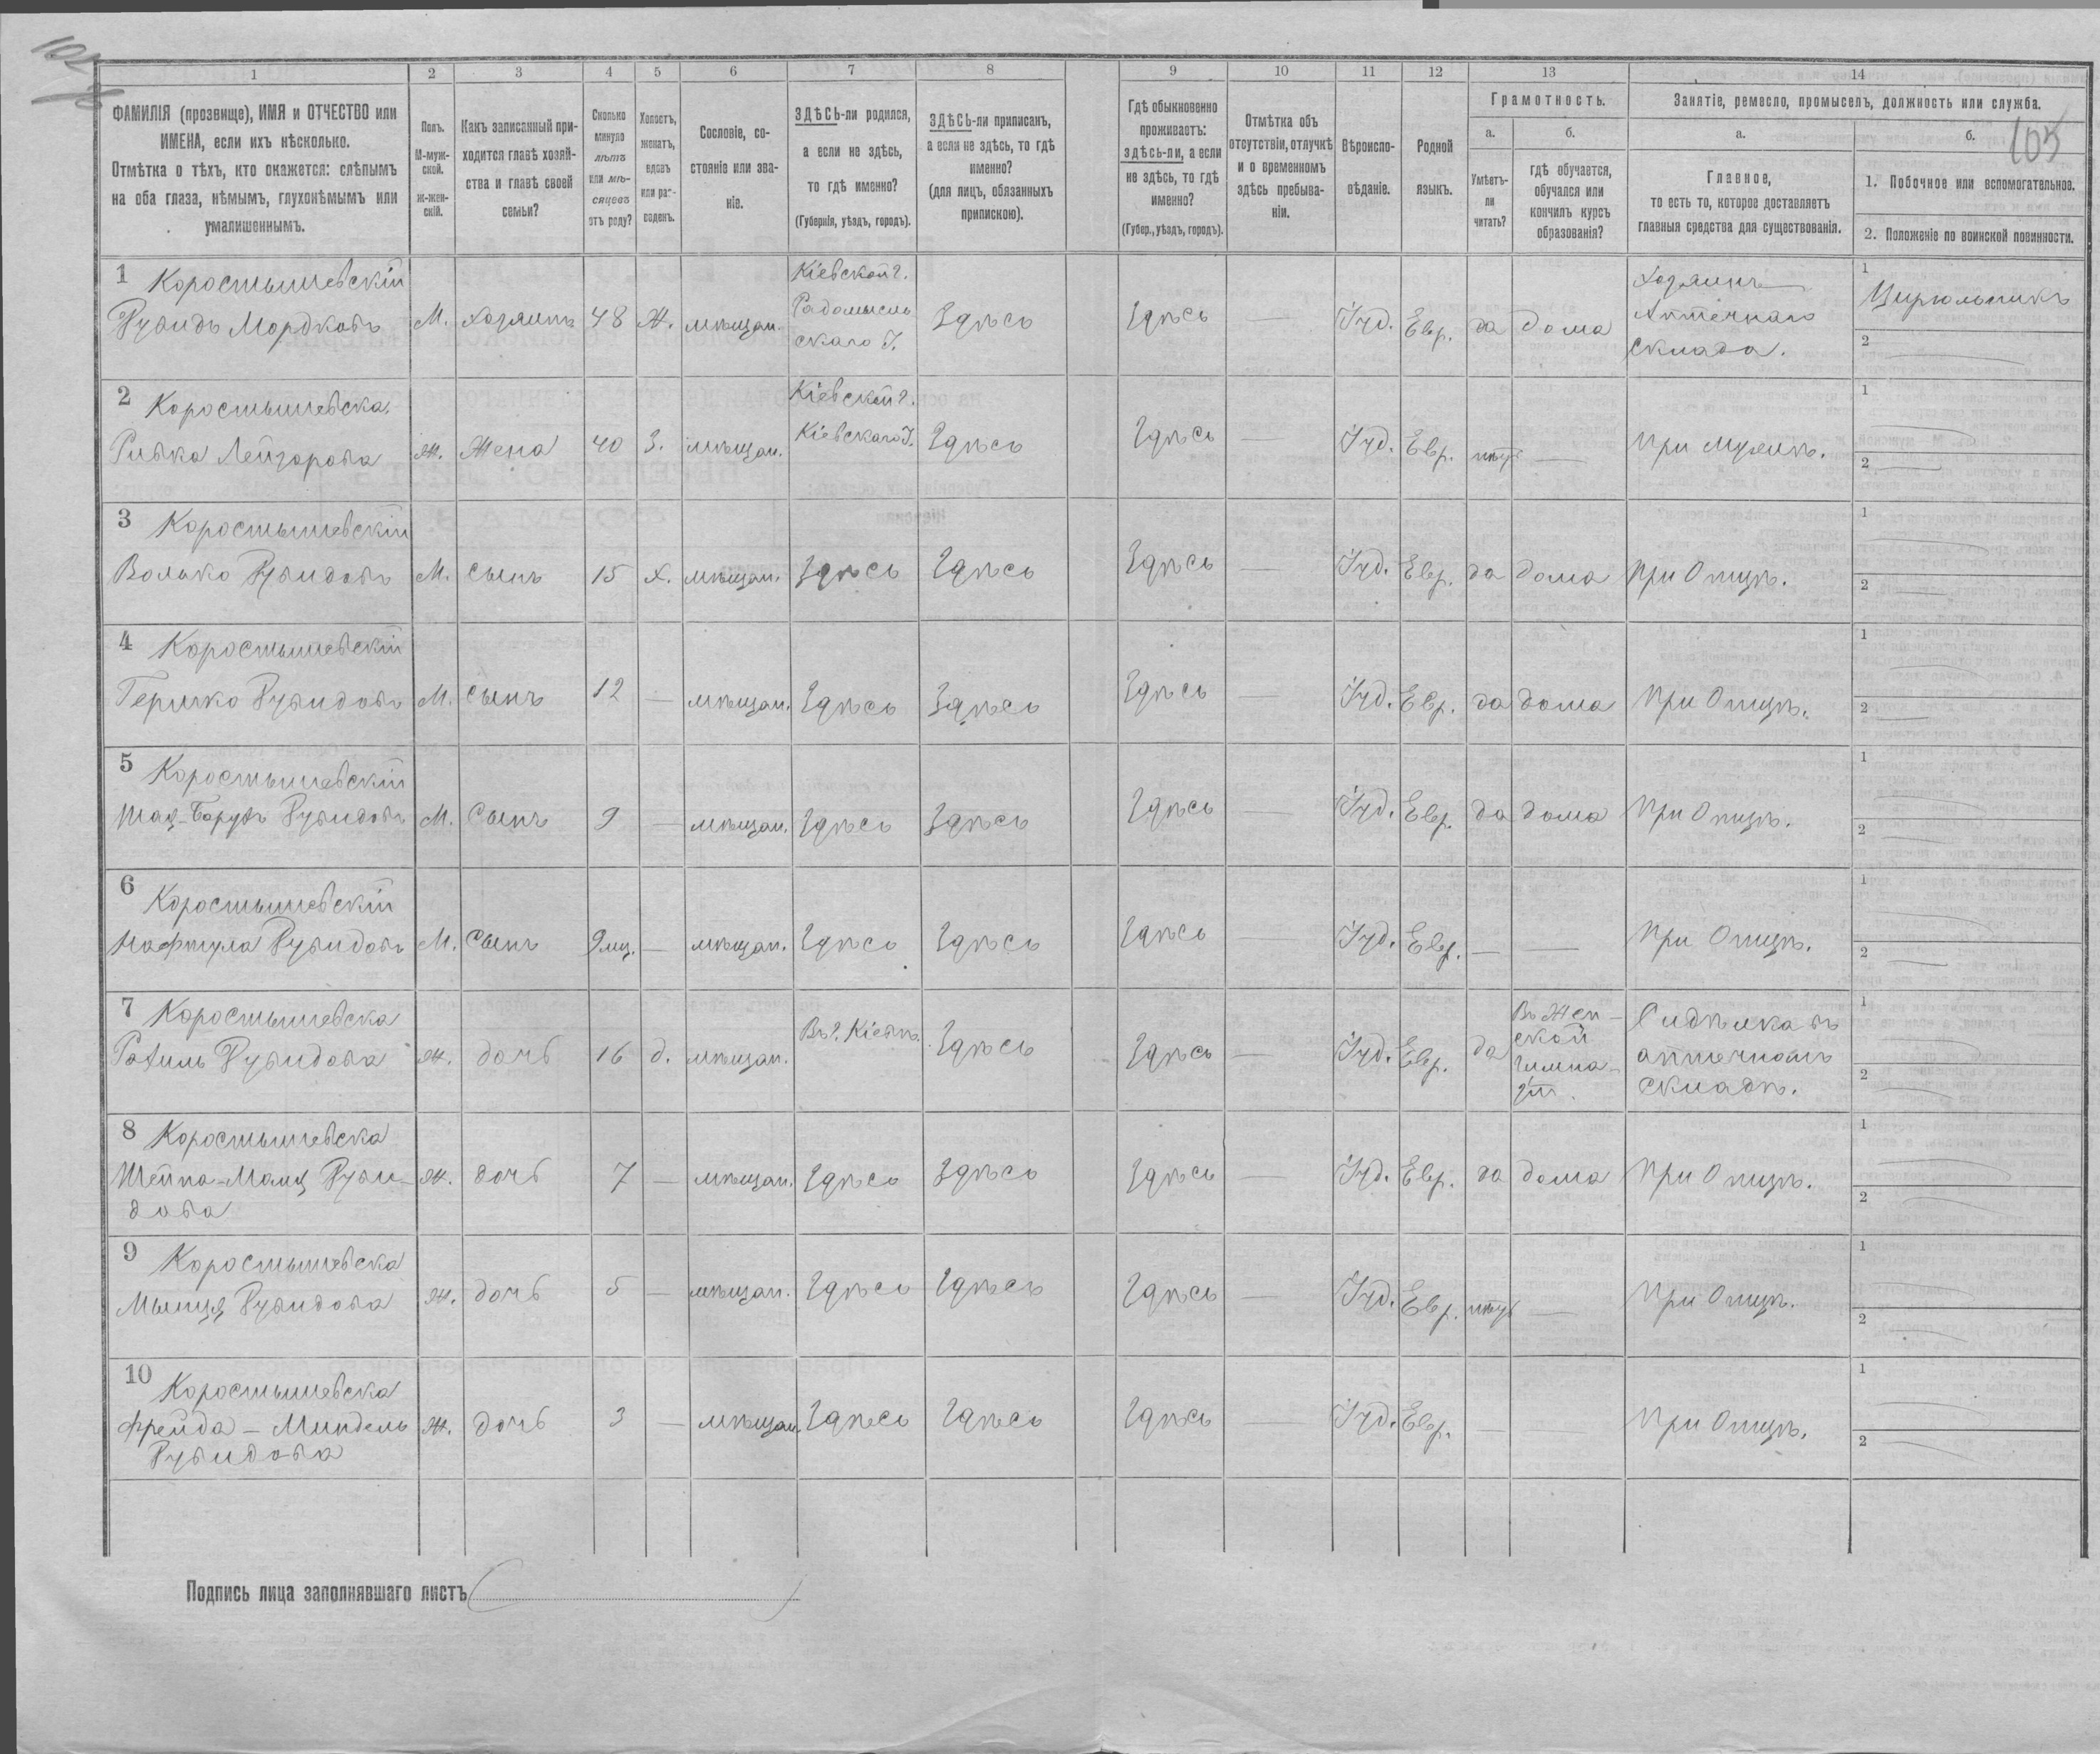 105
1 2 3 4 5 6 7 8 9 10 11 12 13 14
ФАМИЛІЯ (прозвище), ИМЯ и ОТЧЕСТВО или
ИМЕНА, если ихъ нѣсколько.
Отмѣтка о тѣхъ, кто окажется: слѣпымъ
на оба глаза, нѣмымъ, глухонѣмымъ или
умалишеннымъ.
Полъ.
М-муж-
ской.
ж-жен-
скій.
Какъ записанный при-
ходится главѣ хозяй-
ства и главѣ своей
семьи?
Сколько
минуло
лѣтъ
или мѣ-
сяцевъ
отъ роду?
Холостъ,
женатъ,
вдовъ
или раз-
веденъ.
Сословіе, со-
стояніе или зва-
ніе.
ЗДѢСЬ-ли родился,
а если не здѣсь,
то гдѣ именно?
(Губернія, уѣздъ, городъ).
ЗДѢСЬ-ли приписанъ,
а если не здѣсь, то гдѣ
именно?
(для лицъ, обязанныхъ
припискою).
Гдѣ обыкновенно
проживаетъ:
здѣсь-ли, а если
не здѣсь, то гдѣ
именно?
(Губер., уѣздъ, городъ).
Отмѣтка объ
отсутствіи, отлучкѣ
и о временномъ
здѣсь пребыва-
ніи.
Вѣроиспо-
вѣданіе.
Родной
языкъ.
Грамотность.
а.
Умѣетъ-
ли
читать?
б.
гдѣ обучается,
обучался или
кончилъ курсъ
образованія?
Занятіе, ремесло, промыселъ, должность или служба.
а.
Главное,
то есть то, которое доставляетъ
главныя средства для существованія.
б.
1. Побочное или вспомогательное.
2. Положеніе по воинской повинности.
1 Коростышевскій
Рувидъ Мордковъ М. хозяинъ 48 Ж. мѣщан.
Кіевской г.
Радомысль
скаго У.
Здѣсь Здѣсь — Іуд. Евр. да дома
Хозяинъ
Аптечнаго
Склада.
1 Цирюльникъ
2 —
2 Коростышевска
Ривка Лейзорова ж. Жена 40 З. мѣщан.
Кіевской г.
Кіевскаго У.
Здѣсь Здѣсь — Іуд. Евр. нѣтъ — При Мужѣ.
1
2 —
3 Коростышевскій
Волько Рувидовъ М. Сынъ 15 х. мѣщан. Здѣсь Здѣсь Здѣсь — Іуд. Евр. да дома При Отцѣ.
1 —
2 —
4 Коростышевскій
Гершко Рувидовъ М. Сынъ 12 — мѣщан. Здѣсь Здѣсь Здѣсь — Іуд. Евр. да дома При Отцѣ.
1 —
2 —
5 Коростышевскій
Борухъ Рувидовъ М. Сынъ 9 — мѣщан. Здѣсь Здѣсь Здѣсь — Іуд. Евр. да дома При Отцѣ.
1 —
2 —
6 Коростышевскій
Нафтула Рувидовъ М. Сынъ 9 мц. — мѣщан. Здѣсь Здѣсь Здѣсь — Іуд. Евр. — — При Отцѣ.
1 —
2 —
7 Коростышевска
Рахиль Рувидова ж. дочь 16 д. мѣщан. Въ г. Кіевѣ. Здѣсь Здѣсь — Іуд. Евр. да
Въ Жен-
ской
Гимна-
зіи.
Сидѣлка въ
аптечномъ
складѣ.
1 —
2 —
8 Коростышевска
Шейна-Маля Руви-
дова
ж. дочь 7 — мѣщан. Здѣсь Здѣсь Здѣсь — Іуд. Евр. да дома При Отцѣ.
1 —
2 —
9 Коростышевска
Рувидова ж. дочь 5 — мѣщан. Здѣсь Здѣсь Здѣсь — Іуд. Евр. нѣтъ — При Отцѣ.
1 —
2 —
10 Коростышевска
Фрейда - Миндель
Рувидова
ж. дочь 3 — мѣщан. Здѣсь Здѣсь Здѣсь — Іуд. Евр. — — При Отцѣ.
1 —
2 —
Подпись лица заполнявшаго листъ